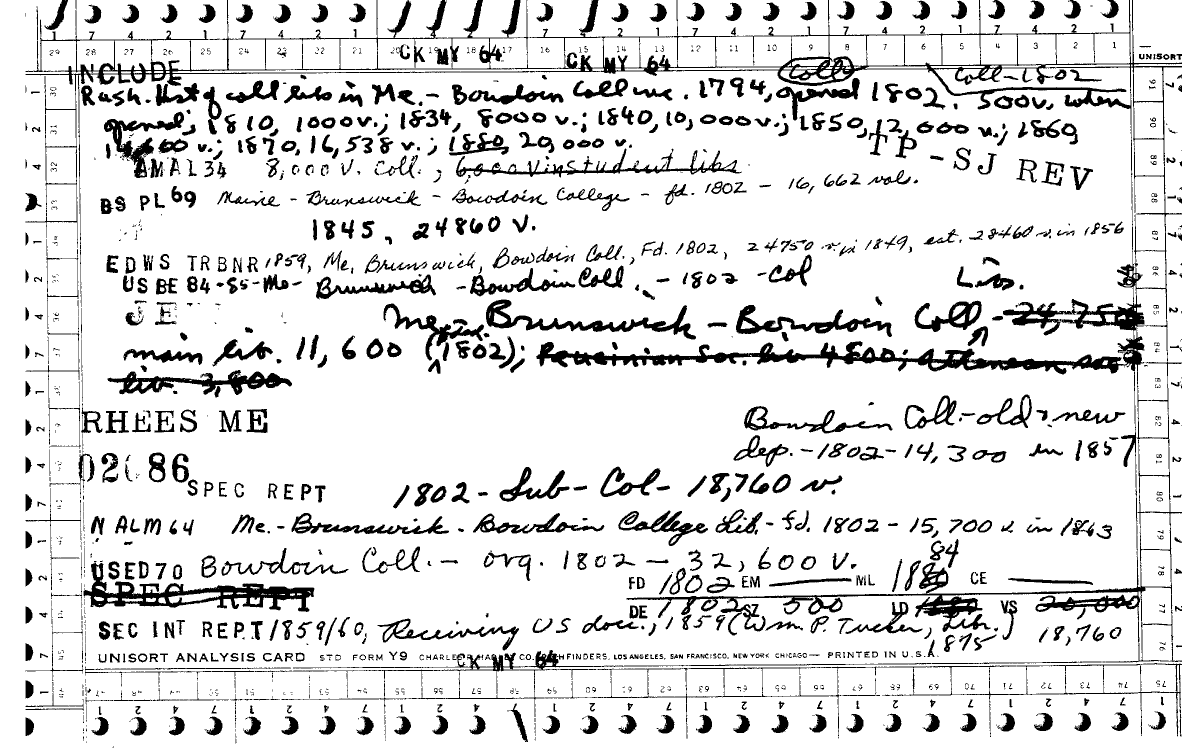 CK MY 64 CK MY 64
UNISORT
INCLUDE Coll Coll-1802
Rush. Hist of coll libs in Me. - Bowdoin Coll inc. 1794, opened 1802. 500v. when
opened; 1810, 1000v.; 1834, 8000v.; 1840, 10,000v.; 1850, 12,000 v.; 1860,
v.; 1870, 16,538 v.; 1880, 20,000 v.
TP-SJ REV
AMAL34 8,000 V. Coll., 6,000 V in student libs
BS PL 69 Maine - Brunswick - Bowdoin College - fd. 1802 - 16,662 vols.
1845, 24860 V.
EDWS TRBNR 1859, Me, Brunswick, Bowdoin Coll., Fd. 1802, 24750 v. in 1849, est. 28460 v. in 1856
US BE 84-85-Me- Brunswick -Bowdoin Coll. - 1802 -Col
Libs.
Me. Brunswick - Bowdoin Coll - 24,750
main lib. 11,600 (1802); Peucinian Soc. lib 4800; Athenean soc
lib. 3,800
RHEES ME
Bowdoin Coll-old & new
dep.-1802-14,300 in 1857
86
SPEC REPT 1802-Sub-Col-18,760 v.
N ALM 64 Me.-Brunswick - Bowdoin College Lib.- fd. 1802 - 15,700 v. in 1863
USED 70 Bowdoin Coll. - org. 1802 - 32,600 V.
84
SPEC REPT
FD 1802 EM ML 1880 CE
DE 1802 SZ 500 LD 1880 VS 20,000
SEC INT REPT 1859/60, Receiving US doc., 1859 (Wm. P. Tucker, Libr.) 1875 18,760
UNISORT ANALYSIS CARD STD FORM Y9 CHARLES R. HADLEY CO., PATHFINDERS, LOS ANGELES, SAN FRANCISCO, NEW YORK CHICAGO— PRINTED IN U.S.A.
CK MY 64